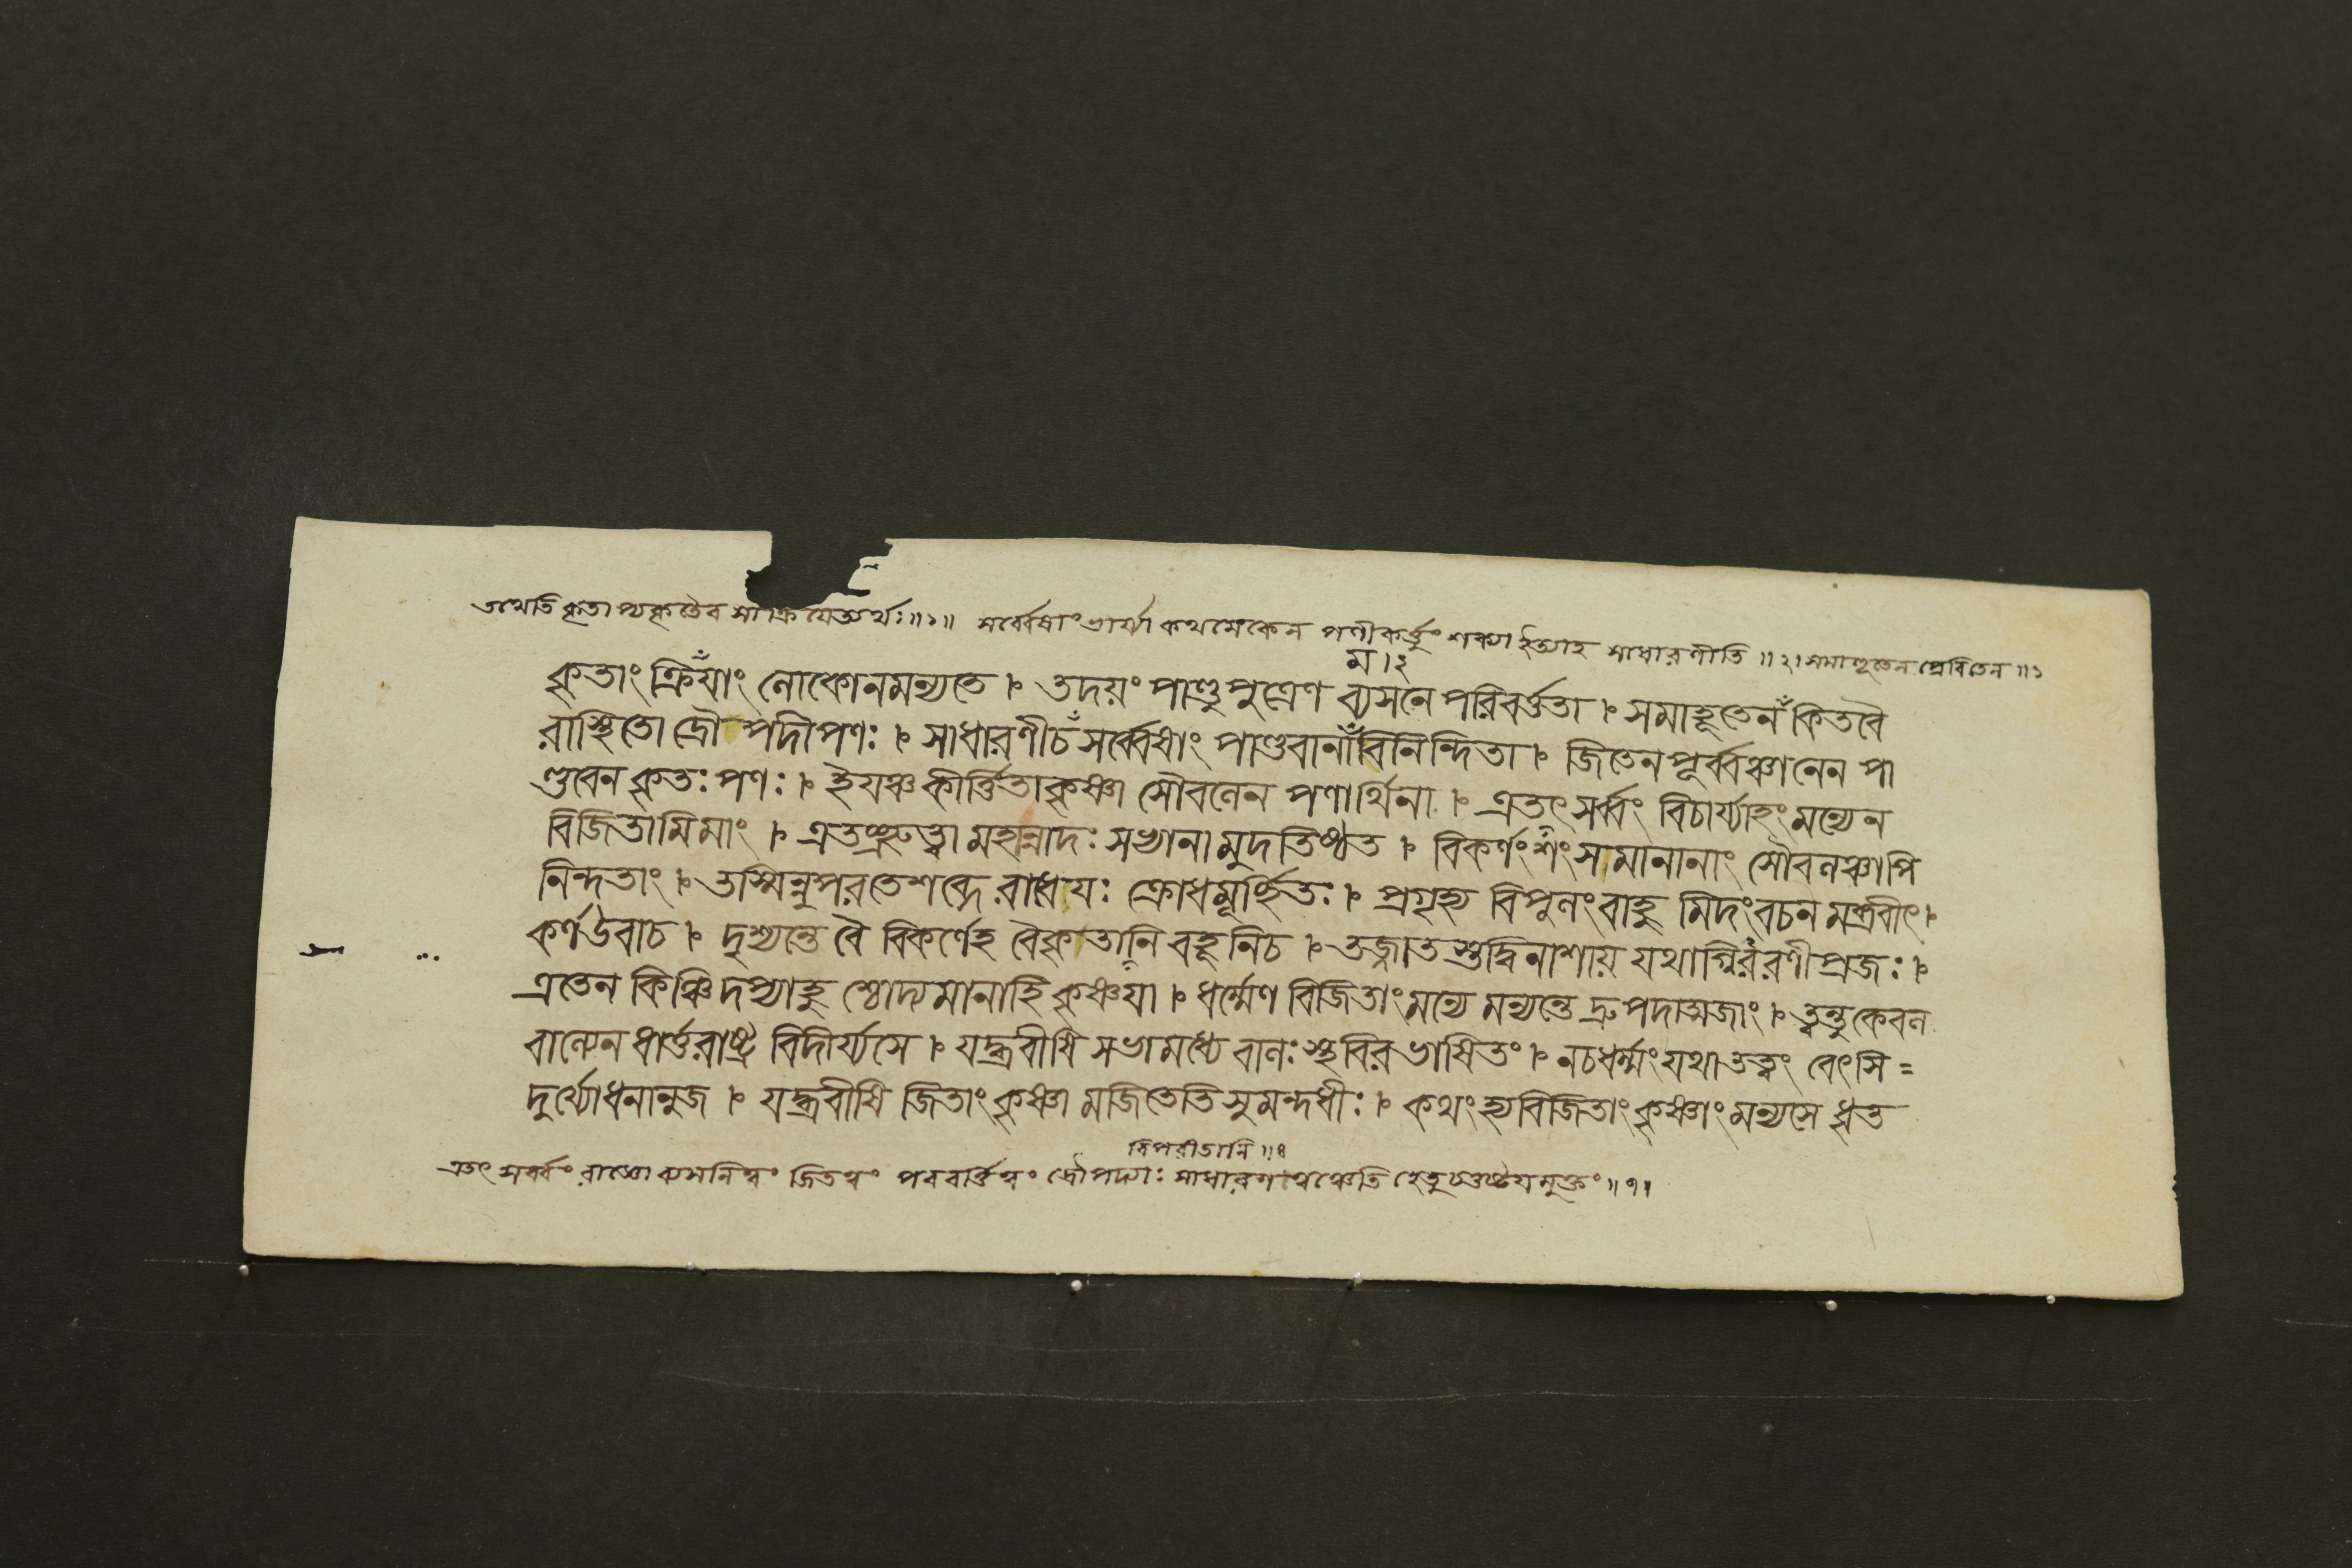 তথেতি কৃতাপ্যকৃতৈব সা ক্রিযেত্যর্থঃ॥১॥ সর্ব্বেষাং ভার্য্যা কথমেকেন পণীকর্ত্তুং শক্যা ইত্যাহ সাধারণীতি ॥২। সমাহূতেন প্রেরিতেন ॥১
ম।২
কৃতাং ক্রিযাঁং লোকোনমন্যতে । তদয়ং পাণ্ডুপুত্রেণ ব্যসনে পরিবর্ত্ততা । সমাহূতেনঁ কিতবৈ
রাস্থিতো দ্রৌপদীপণঃ । সাধারণীচঁ সর্ব্বেষাং পাণ্ডবানাঁবিনিন্দিতা । জিতেন পূর্ব্বঞ্চানেন পা
ণ্ডবেন কৃতঃ পণঃ । ইযঞ্চ কীর্ত্তিতা কৃষ্ণা সৌবলেন পণার্থিনা । এতৎ সর্ব্বং বিচার্য্যাহং মন্যেন
বিজিতামিমাং । এতচ্ছ্রুত্বা মহান্নাদঃ সভ্যানামুদতিষ্ঠত । বিকর্ণং শংসমানানাং সৌবলঞ্চাপি
নিন্দতাং । তস্মিন্নুপরতে শব্দে রাধেযঃ ক্রোধমূর্চ্ছিতঃ । প্রগৃহ্য বিপুলং বাহু মিদং বচনমব্রবীৎ।
কর্ণউবাচ । দৃশ্যন্তে বৈ বিকর্ণেহ বৈকৃতানি বহূনিচ । তজ্জাতস্তদ্বিনাশায় যথাগ্নিররণীপ্রজঃ ।
এতেন কিঞ্চিদপ্যাহু শ্চোদ্যমানাহি কৃষ্ণযা । ধর্ম্মেণ বিজিতাং মন্যে মন্যন্তে দ্রুপদাত্মজাং । ত্বন্তু কেবল
বাল্যেন ধার্ত্তরাষ্ট্র বিদীর্য্যসে । যদ্ব্রবীষি সভামধ্যে বালঃ স্থবিরভাষিতং । নচধর্ম্মং যথাতত্ত্বং বেৎসি =
দুর্য্যোধনানুজ । যদ্ব্রবীষি জিতাং কৃষ্ণা মজিতেতি সুমন্দধীঃ । কথং হ্যবিজিতাং কৃষ্ণাং মন্যসে ধৃত
বিপরীতানি ॥৪
এতৎ সর্ব্বং রাজ্ঞো ব্যসনিত্বং জিতত্বং পরবর্ত্তিত্বং দ্রৌপদ্যাঃ সাধারণত্বঞ্চেতি হেতুচতুষ্টযমুক্তং ॥৭॥